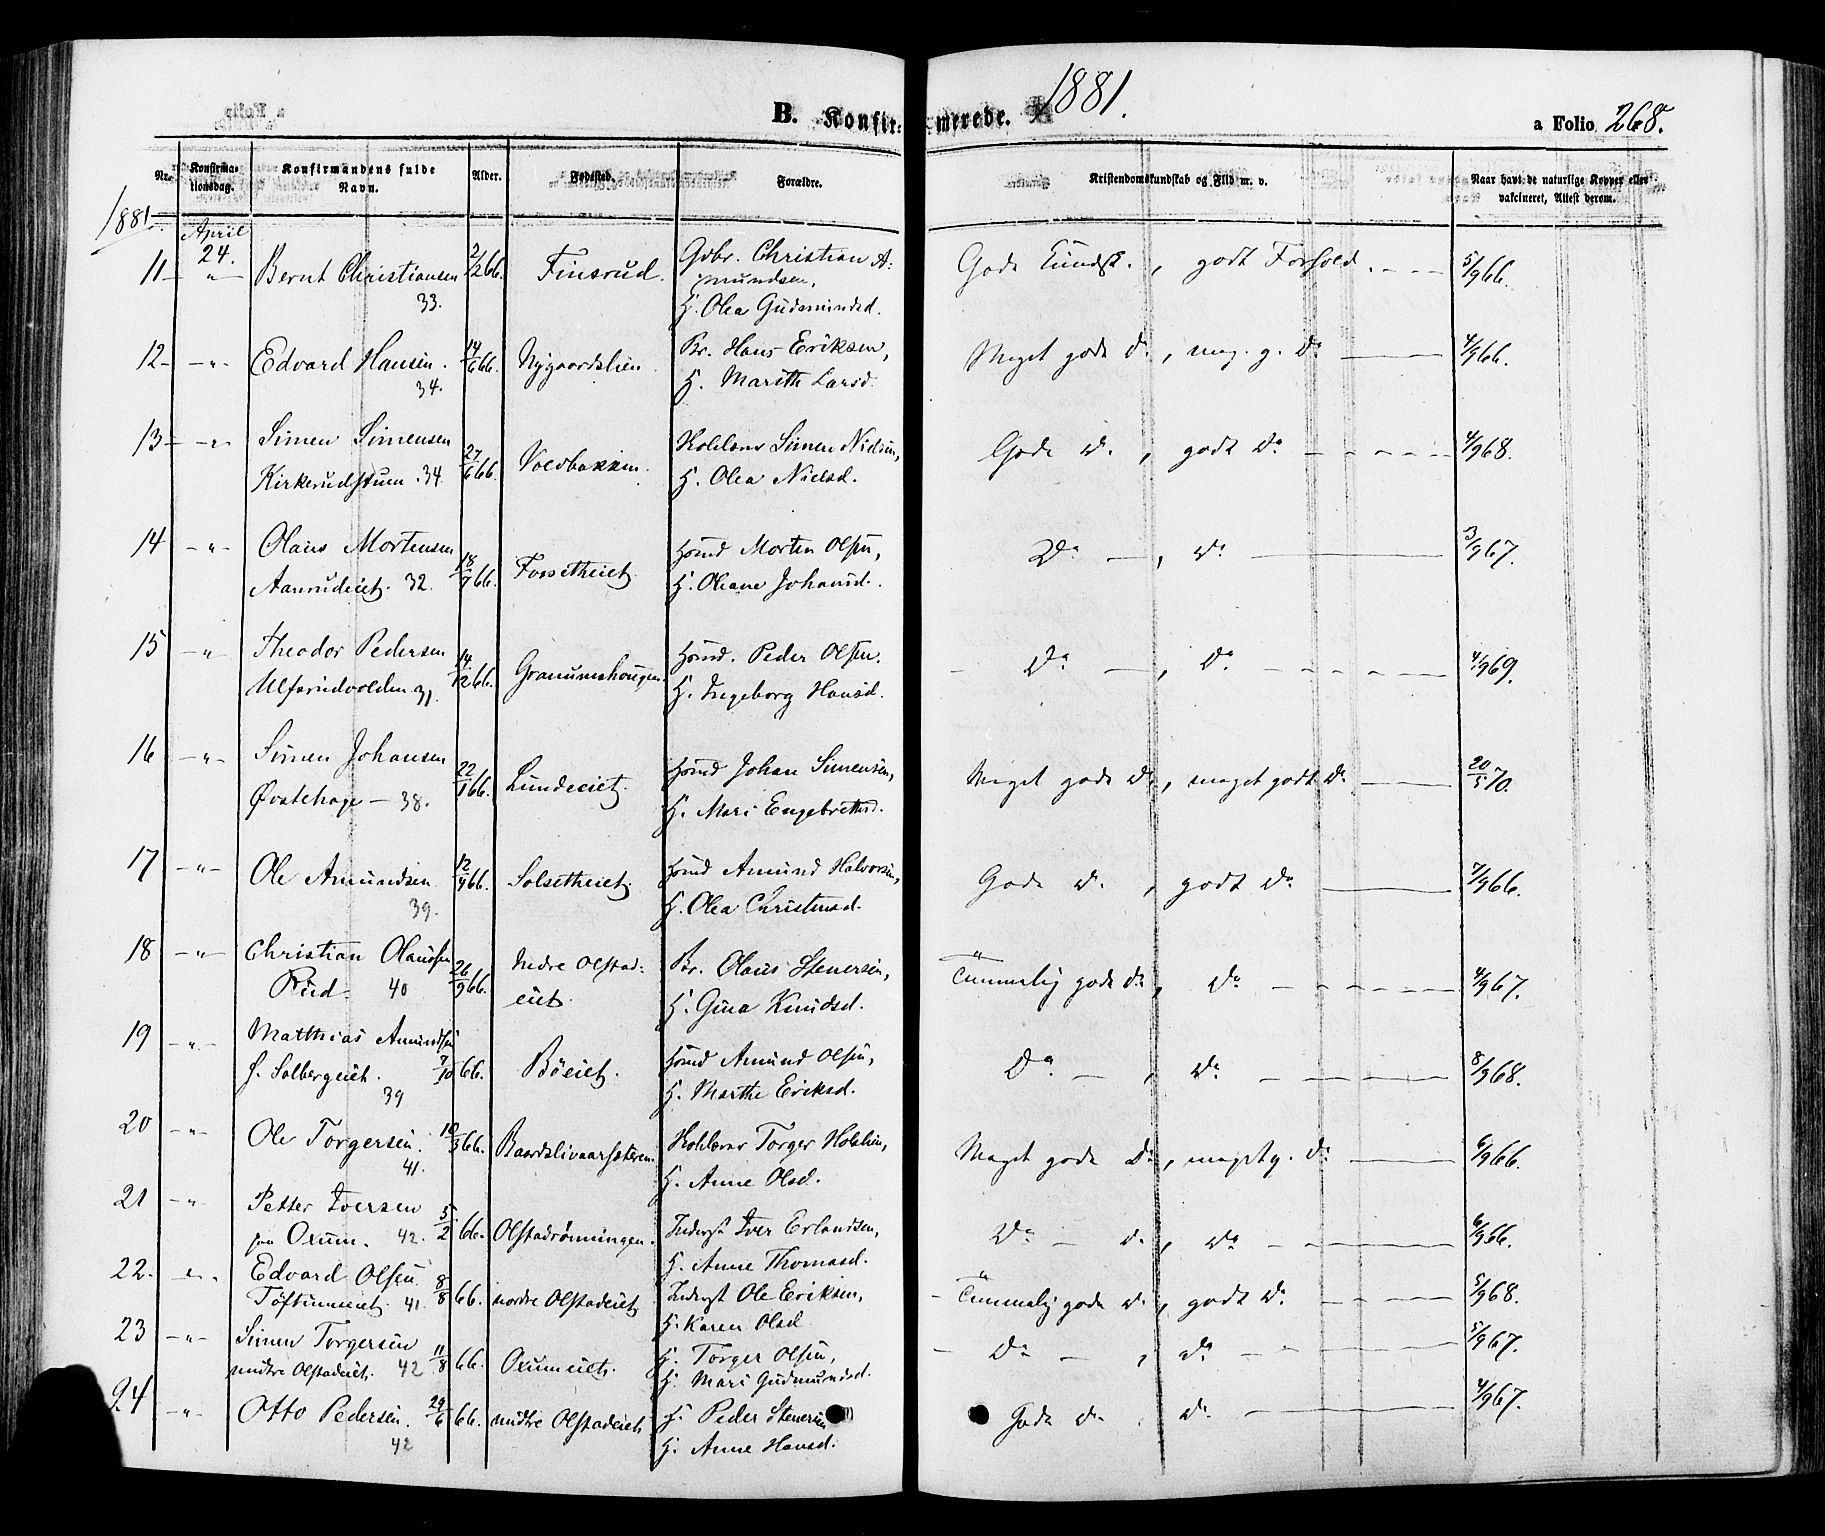 B. Konfirmerede. 1881.
a Folio 268.
Nr. Konfirmationsdag. Konfirmandens fulde Navn. Alder. Fødested. Forældre. Kristendomskundskab og Flid m. v. Naar havt de naturlige Kopper eller vakcineret, Attest derom.
1881. April
11 24. Bernt Christiansen 2/2 66. Finsrud. Gdbr. Christian A= Gode Kundsk., godt Forhold. 5/9 66.
33. mundsen,
K. Olea Gudmundsd.
12 " Edvard Hansen. 14/6 66. Nygaardslien Br. Hans Eriksen, Meget gode Do, meg. g. Do 4/9 66.
34. K. Marith Larsd.
13 " Simen Simensen 27/6 66. Voldbakken. Simen Nielsen, Gode Do, godt Do 4/9 68.
Kirkerudstuen. 34. K. Olea Nielsd.
14 " Olaus Mortensen 18/9 66. Fossetheiet. Hmd Morten Olsen, Do, Do 3/9 67.
Aanrudeiet. 32. K. Oleane Johansd.
15 " Theodor Pedersen 14/12 66. Granumshougen Hmd. Peder Olsen. Do, Do 4/9 69.
Ulfsrudvolden 31. K. Ingeborg Hansd.
16 " Simen Johansen 22/1 66. Lundeeiet. Hmd Johan Simensen, Meget gode Do, meget godt Do 20/5 70.
Øvstehage 38. K. Mari Engebretsd.
17 " Ole Amundsen 12/4 66. Solsetheiet. Hmd Amund Halvorsen, Gode Do, godt Do 7/9 66.
39. K. Olea Christensd.
18 " Christian Olaussen 26/9 66. Nedre Olstad= Br. Olaus Stenersen, Temmelig gode Do, Do 4/9 67.
Rud. 40 eiet. K. Gina Knudsd.
19 " Matthias Amundsen
S. Solbergeiet. 7/10 66. Bøeiet. Hmd Amund Olsen, Do, Do 8/9 68.
39 K. Marthe Eriksd.
20 " Ole Torgersen. 10/3 66. Torger Holsten, Meget gode Do, meget g. Do 6/9 66.
41. K. Anne Olsd.
21 " Petter Iversen 5/2 66. Olstadrønningen. Inderst Iver Erlandsen, Do Do, Do 6/9 66.
paa Oxum. 42. K. Anne Thomasd.
22. " Edvard Olsen. 8/8 66. nordre Olstadeiet Inderst Ole Eriksen, Temmelig gode Do, godt Do 5/9 68.
Tøftumeiet. 41. K. Karen Olsd
23 " Simen Torgersen 11/8 66. Oxumeiet. K. Torger Olsen, Do, Do 5/9 67.
nedre Olstadeiet. 42 K. Mari Gudmundsd.
24 " Otto Pedersen. 29/6 66. nedre Olstadeiet Peder Stenersen Gode Do. Do. 4/9 67.
42 K. Anne Hansd.